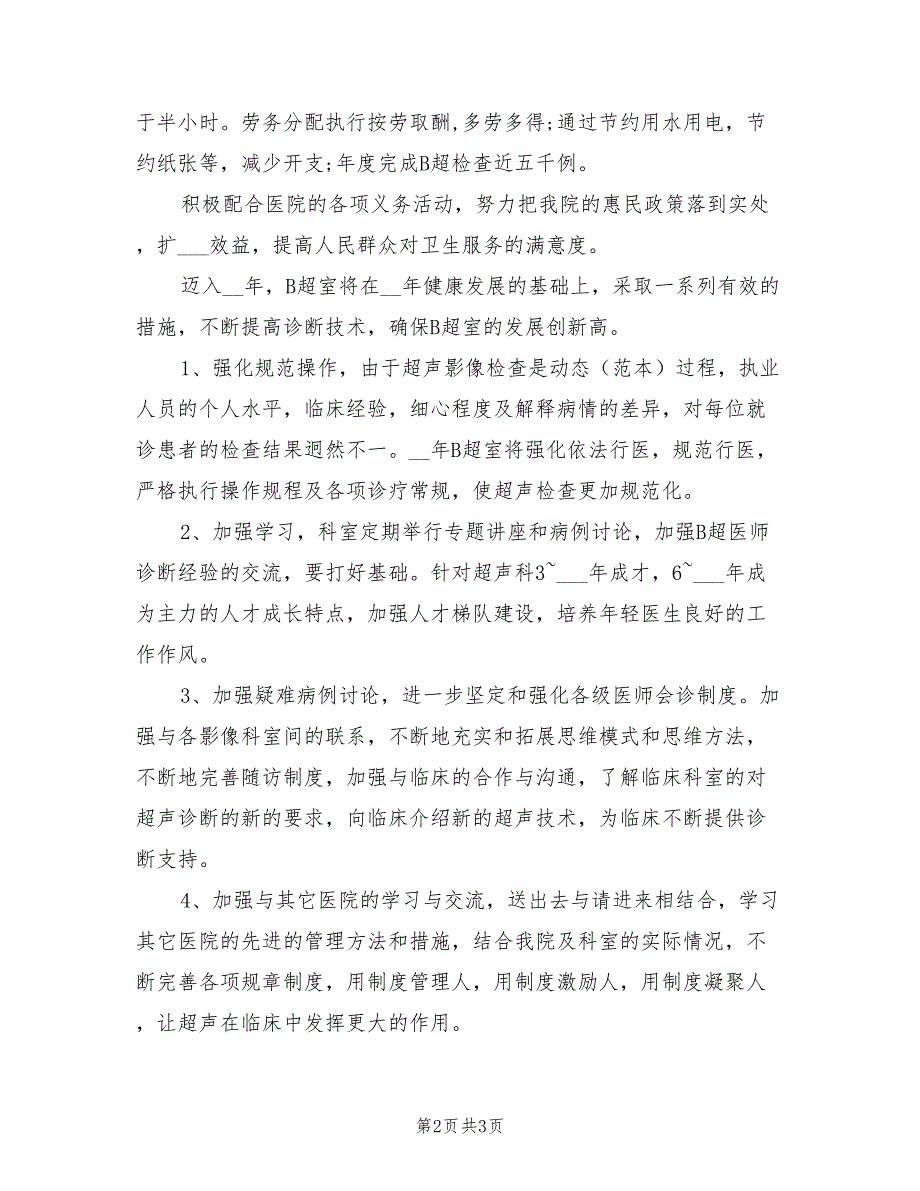 于半小时。劳务分配执行按劳取酬,多劳多得;通过节约用水用电，节
约纸张等，减少开支;年度完成B超检查近五千例。
积极配合医院的各项义务活动，努力把我院的惠民政策落到实处
，扩___效益，提高人民群众对卫生服务的满意度。
迈入__年，B超室将在__年健康发展的基础上，采取一系列有效的
措施，不断提高诊断技术，确保B超室的发展创新高。
1、强化规范操作，由于超声影像检查是动态（范本）过程，执业
人员的个人水平，临床经验，细心程度及解释病情的差异，对每位就
诊患者的检查结果迥然不一。__年B超室将强化依法行医，规范行医，
严格执行操作规程及各项诊疗常规，使超声检查更加规范化。
2、加强学习，科室定期举行专题讲座和病例讨论，加强B超医师
诊断经验的交流，要打好基础。针对超声科3~___年成才，6~___年成
为主力的人才成长特点，加强人才梯队建设，培养年轻医生良好的工
作作风。
3、加强疑难病例讨论，进一步坚定和强化各级医师会诊制度。加
强与各影像科室间的联系，不断地充实和拓展思维模式和思维方法，
不断地完善随访制度，加强与临床的合作与沟通，了解临床科室的对
超声诊断的新的要求，向临床介绍新的超声技术，为临床不断提供诊
断支持。
4、加强与其它医院的学习与交流，送出去与请进来相结合，学习
其它医院的先进的管理方法和措施，结合我院及科室的实际情况，不
断完善各项规章制度，用制度管理人，用制度激励人，用制度凝聚人
，让超声在临床中发挥更大的作用。
第2页 共3页